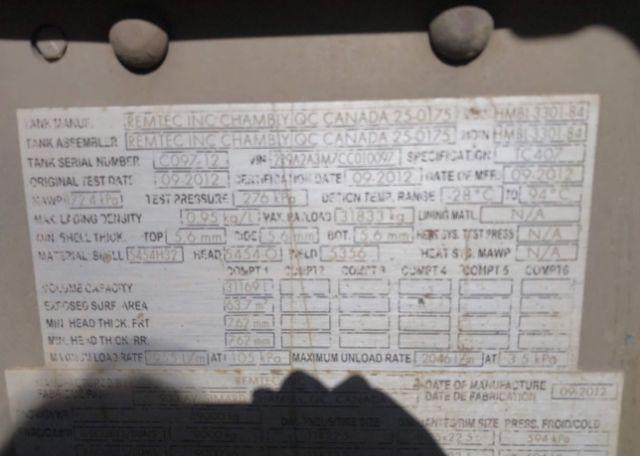 TANK MANUF. REMTEC INC CHAMBLY QC CANADA 25-0175 HMBL3301.84
TANK ASSEMBLER REMTEC INC CHAMBLY QC CANADA 25-0175 HMBL3301.84
TANK SERIAL NUMBER C097-12 VIN 2R9A2A3M7CC010097 SPECIFICATION TC 407
ORIGINAL TEST DATE 09-2012 CERTIFICATION DATE 09-2012 DATE OF MFR. 09-2012
MAWP 172.4 kPa TEST PRESSURE 276 kPa DESIGN TEMP. RANGE -28°C TO 94°C
MAX. LADING DENSITY 0.95 kg/L MAX. PAYLOAD 31833 kg LINING MATL. N/A
MIN. SHELL THICK. TOP 5.6 mm SIDE 5.6 mm BOT. 5.6 mm HEAT SYS. TEST PRESS N/A
MATERIAL: SHELL 5454H32 HEAD 5454-O WELD 5356 HEAT SYS. MAWP N/A
COMPT 1 COMPT 2 COMPT 3 COMPT 4 COMPT 5 COMPT 6
VOLUME CAPACITY 31169 L
EXPOSED SURF. AREA 63.7 m²
MIN. HEAD THICK. FRT 7.62 mm
MIN. HEAD THICK. RR. 7.62 mm
MAXIMUM LOAD RATE L/m AT 105 kPa MAXIMUM UNLOAD RATE 2046 L/m AT 3.5 kPa
REMTEC DATE OF MANUFACTURE
CHAMBLY, QC, CANADA DATE DE FABRICATION 09-2012
RIM SIZE PRESS. FROID/COLD
594 kPa